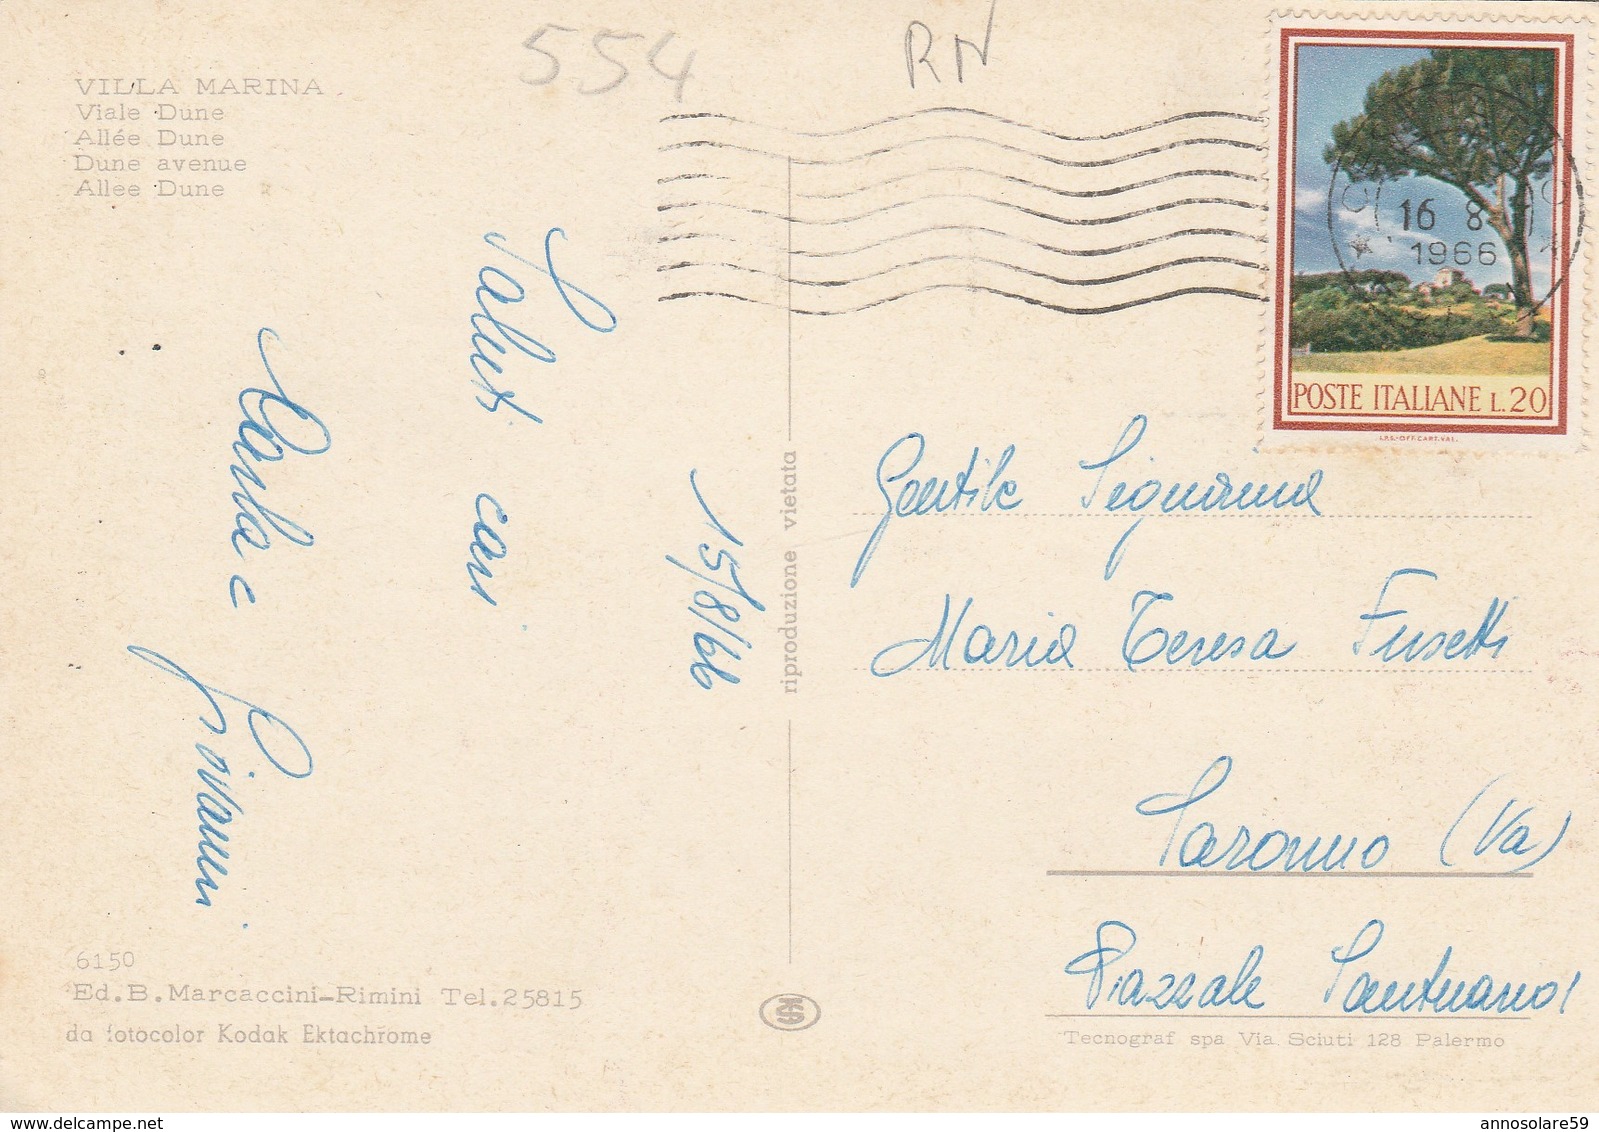 554
RN
VILLA MARINA
Viale Dune
Allée Dune
Dune avenue
Allee Dune
16 8
1966
POSTE ITALIANE L.20
I.P.S.-OFF.CART.VAL.
15/8/66
Saluti cari
Carla e
Giovanni
riproduzione vietata
Gentile Signorina
Maria Teresa Fusetti
Saronno (Va)
Piazzale Santuario 1
6150
Ed.B.Marcaccini-Rimini Tel.25815
da fotocolor Kodak Ektachrome
Tecnograf spa Via Sciuti 128 Palermo
annosolare59